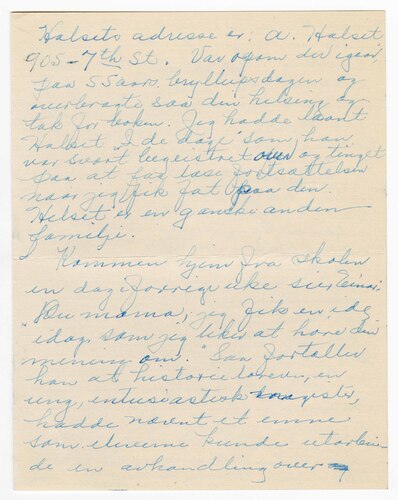 Halsets adresse er: A. Halset
905 - 7th St. Var opom der igaar
paa 55 aars bryllupsdagen og
overbragte saa din hilsing og
tak for boken. Jeg hadde laant
Halset "I de dage" som han
var svært begeistret over og tinget
paa at faa læse fortsættelsen
naar jeg fik fat paa den.
"Helset" er en ganske anden
familje.
Kommen hjem fra skolen
en dag i forrige uke sier Einar:
"Du mama, jeg fik en ide
idag som jeg liker at høre din
mening om." Saa fortaller
han at historielæreren, en
ung, entusiastisk magister,
hadde nævnt et emne
som elevene kunde utarbei-
de en avhandling over